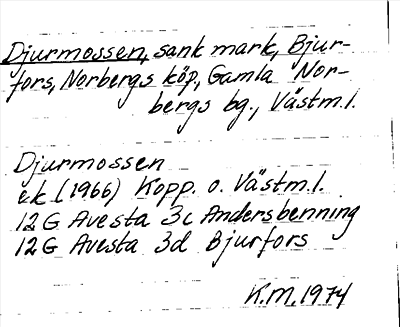 Djurmossen, sank mark, Bjur-
fors, Norbergs köp, Gamla Nor-
bergs bg., Västm.l.
Djurmossen
ek (1966) Kopp. o. Västm.l.
12 G Avesta 3c Andersbenning
12 G Avesta 3d Bjurfors
K.M. 1974